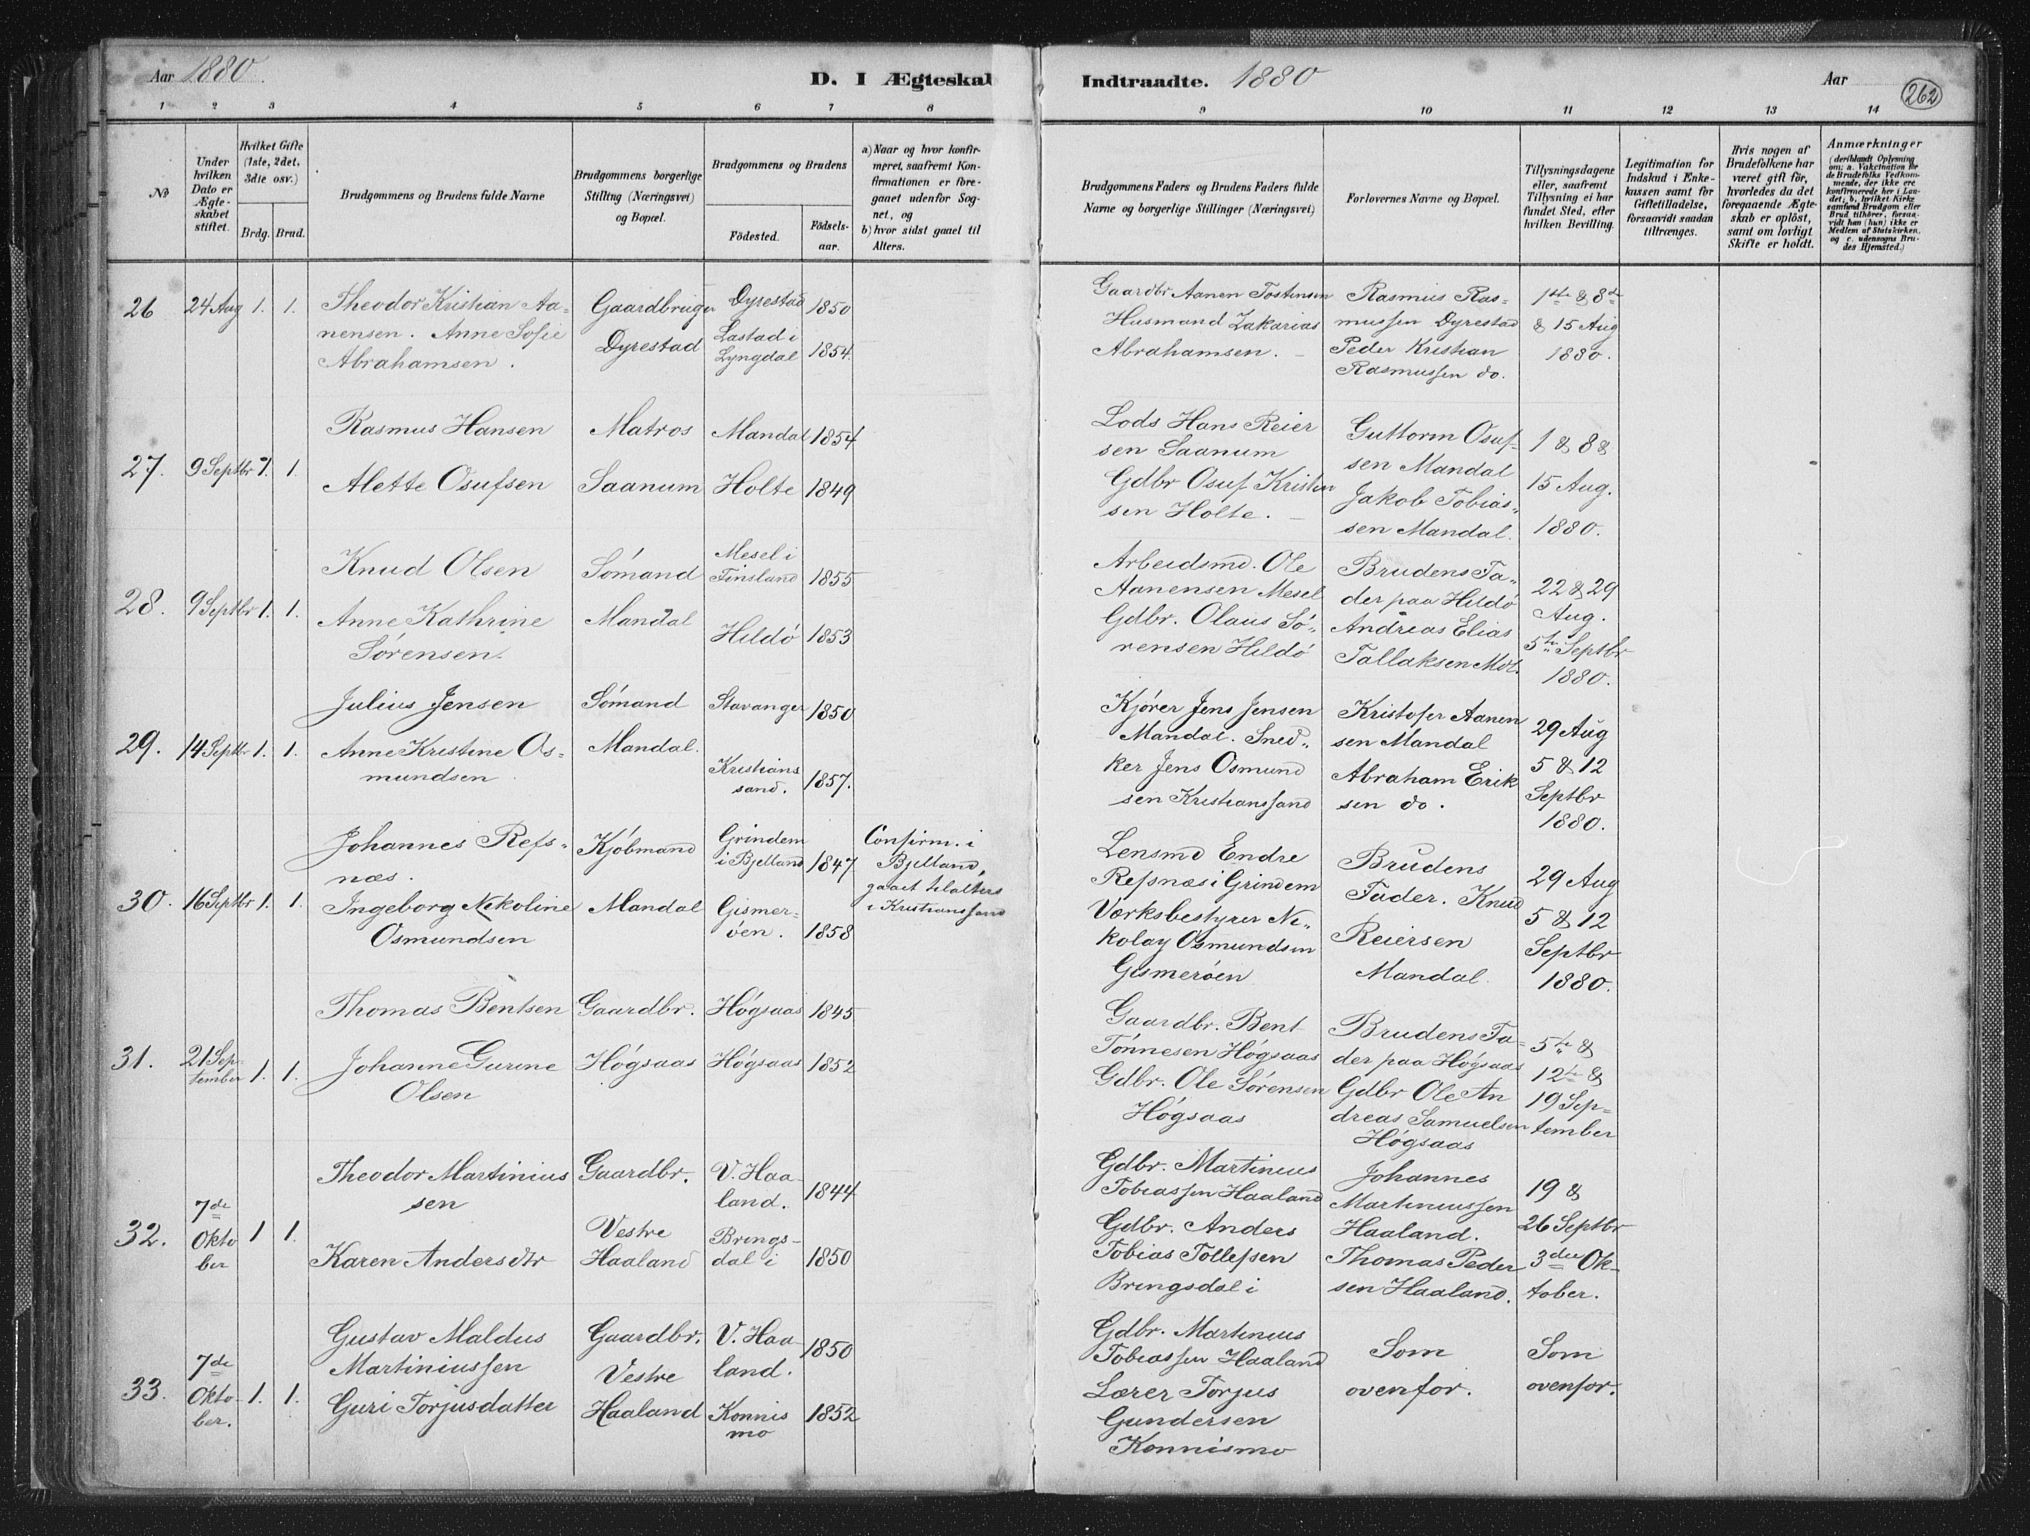 Aar 1880.
D. I Ægteskab
Indtraadte. 1880
Aar
262
1 2 3 4 5 6 7 8 9 10 11 12 13 14
No
Under hvilken Dato er Ægteskabet stiftet.
Hvilket Gifte (1ste, 2det, 3die osv.)
Brdg. Brud.
Brudgommens og Brudens fulde Navne
Brudgommens borgerlige Stilling (Næringsvei) og Bopæl.
Brudgommens og Brudens
Fødested.
Fødselsaar.
a) Naar og hvor konfirmeret, saafremt Konfirmationen er foregaaet udenfor Sognet, og
b) hvor sidst gaaet til Alters.
Brudgommens Faders og Brudens Faders fulde Navne og borgerlige Stillinger (Næringsvei)
Forlovernes Navne og Bopæl.
Tillysningsdagene eller, saafremt Tillysning ei har fundet Sted, efter hvilken Bevilling.
Legitimation for Indskud i Enkekassen samt for Giftetilladelse, forsaavidt saadan tiltrænges.
Hvis nogen af Brudefolkene har været gift før, hvorledes da det foregaaende Ægteskab er opløst, samt om lovligt Skifte er holdt.
Anmærkninger
(deriblandt Oplysning om: a. Vakcination for de Brudefolks Vedkommende, der ikke ere konfirmerede her i Landet; b. hvilket Kirkesamfund Brudgom eller Brud tilhører, forsaavidt han (hun) ikke er Medlem af Statskirken, og c. udensogns Brudes Hjemsted.)
26 24 Aug 1. 1.
Theodor Kristian Aa-
nensen. Anne Sofie
Abrahamsen.
Gaardbruger
Dyrestad
Dyrestad 1850
Lastad i
Lyngdal 1854
Gaardbr Aanen Tostensen
Husmand Zakarias
Abrahamsen. –
Rasmus Ras-
mussen Dyrestad
Peder Kristian
Rasmussen do.
1ste & 8de
& 15 Aug
1880.
27. 9 Septbr 1. 1.
Rasmus Hansen
Alette Osufsen
Matros
Saanum
Mandal 1854
Holte 1849
Lods Hans Reier
sen Saanum
Gdbr Osuf Kristen
sen Holte. –
Guttorm Osuf-
sen Mandal
Jakob Tobias-
sen Mandal.
1 & 8 &
15 Aug.
1880.
28. 9 Septbr 1. 1.
Knud Olsen
Anne Kathrine
Sørensen.
Sømand
Mandal
Mesel i
Finsland 1855
Hildø 1853
Arbeidsmd. Ole
Aanensen Mesel
Gdbr. Olaus Sø-
rensen Hildø
Brudens Fa-
der paa Hildø
Andreas Elias
Tallaksen Mdl.
22 & 29
Aug.
5te Septbr
1880.
29. 14 Septbr 1. 1.
Julius Jensen
Anne Kristine Os-
mundsen
Sømand
Mandal.
Stavanger 1850
Kristians
sand. 1857.
Kjører Jens Jensen
Mandal. Sned-
ker Jens Osmund
sen Kristianssand
Kristofer Aanen
sen Mandal
Abraham Erik
sen do.
29 Aug
5 & 12
Septbr
1880.
30. 16 Septbr 1. 1.
Johannes Refs-
næs.
Ingeborg Nikoline
Osmundsen
Kjøbmand
Mandal
Grindem
i Bjelland 1847
Gismer-
øen. 1858
Confirm. i
Bjelland,
gaaet til alters
i Kristianssand
Lensmd Endre
Refsnæs i Grindem
Værksbestyrer Ni-
kolay Osmundsen
Gismerøen
Brudens
Fader. Knud
Reiersen
Mandal.
29 Aug
5 & 12
Septbr
1880.
31. 21 Sep-
tember 1. 1.
Thomas Bentsen
Johanne Gurine
Olsen
Gaardbr.
Høgsaas
Høgsaas 1845
Høgsaas 1852
Gaardbr. Bent
Tønnesen Høgsaas
Gdbr. Ole Sørensen
Høgsaas
Brudens Fa-
der paa Høgsaas
Gdbr Ole An
dreas Samuelsen
Høgsaas
5te &
12te &
19 Sep-
tember
32. 7de
Okto
ber 1 1.
Theodor Martinius
sen
Karen Andersdtr
Gaardbr.
Vestre
Haaland
V. Haa-
land. 1844
Brings-
dal i 1850
Gdbr. Martinius
Tobiassen Haaland
Gdbr. Anders
Tobias Tollefsen
Bringsdal i
Johannes
Martiniussen
Haaland.
Thomas Peder
sen Haaland.
19 &
26 Septbr
3die Ok-
tober.
33. 7de
Okto-
ber. 1. 1.
Gustav Maldus
Martiniussen
Guri Torjusdatter
Gaardbr.
Vestre
Haaland
V. Haa-
land. 1850
Konnis
mo 1852
Gdbr. Martinius
Tobiassen Haaland
Lærer Torjus
Gundersen
Konnismo
Som
ovenfor.
Som
ovenfor.